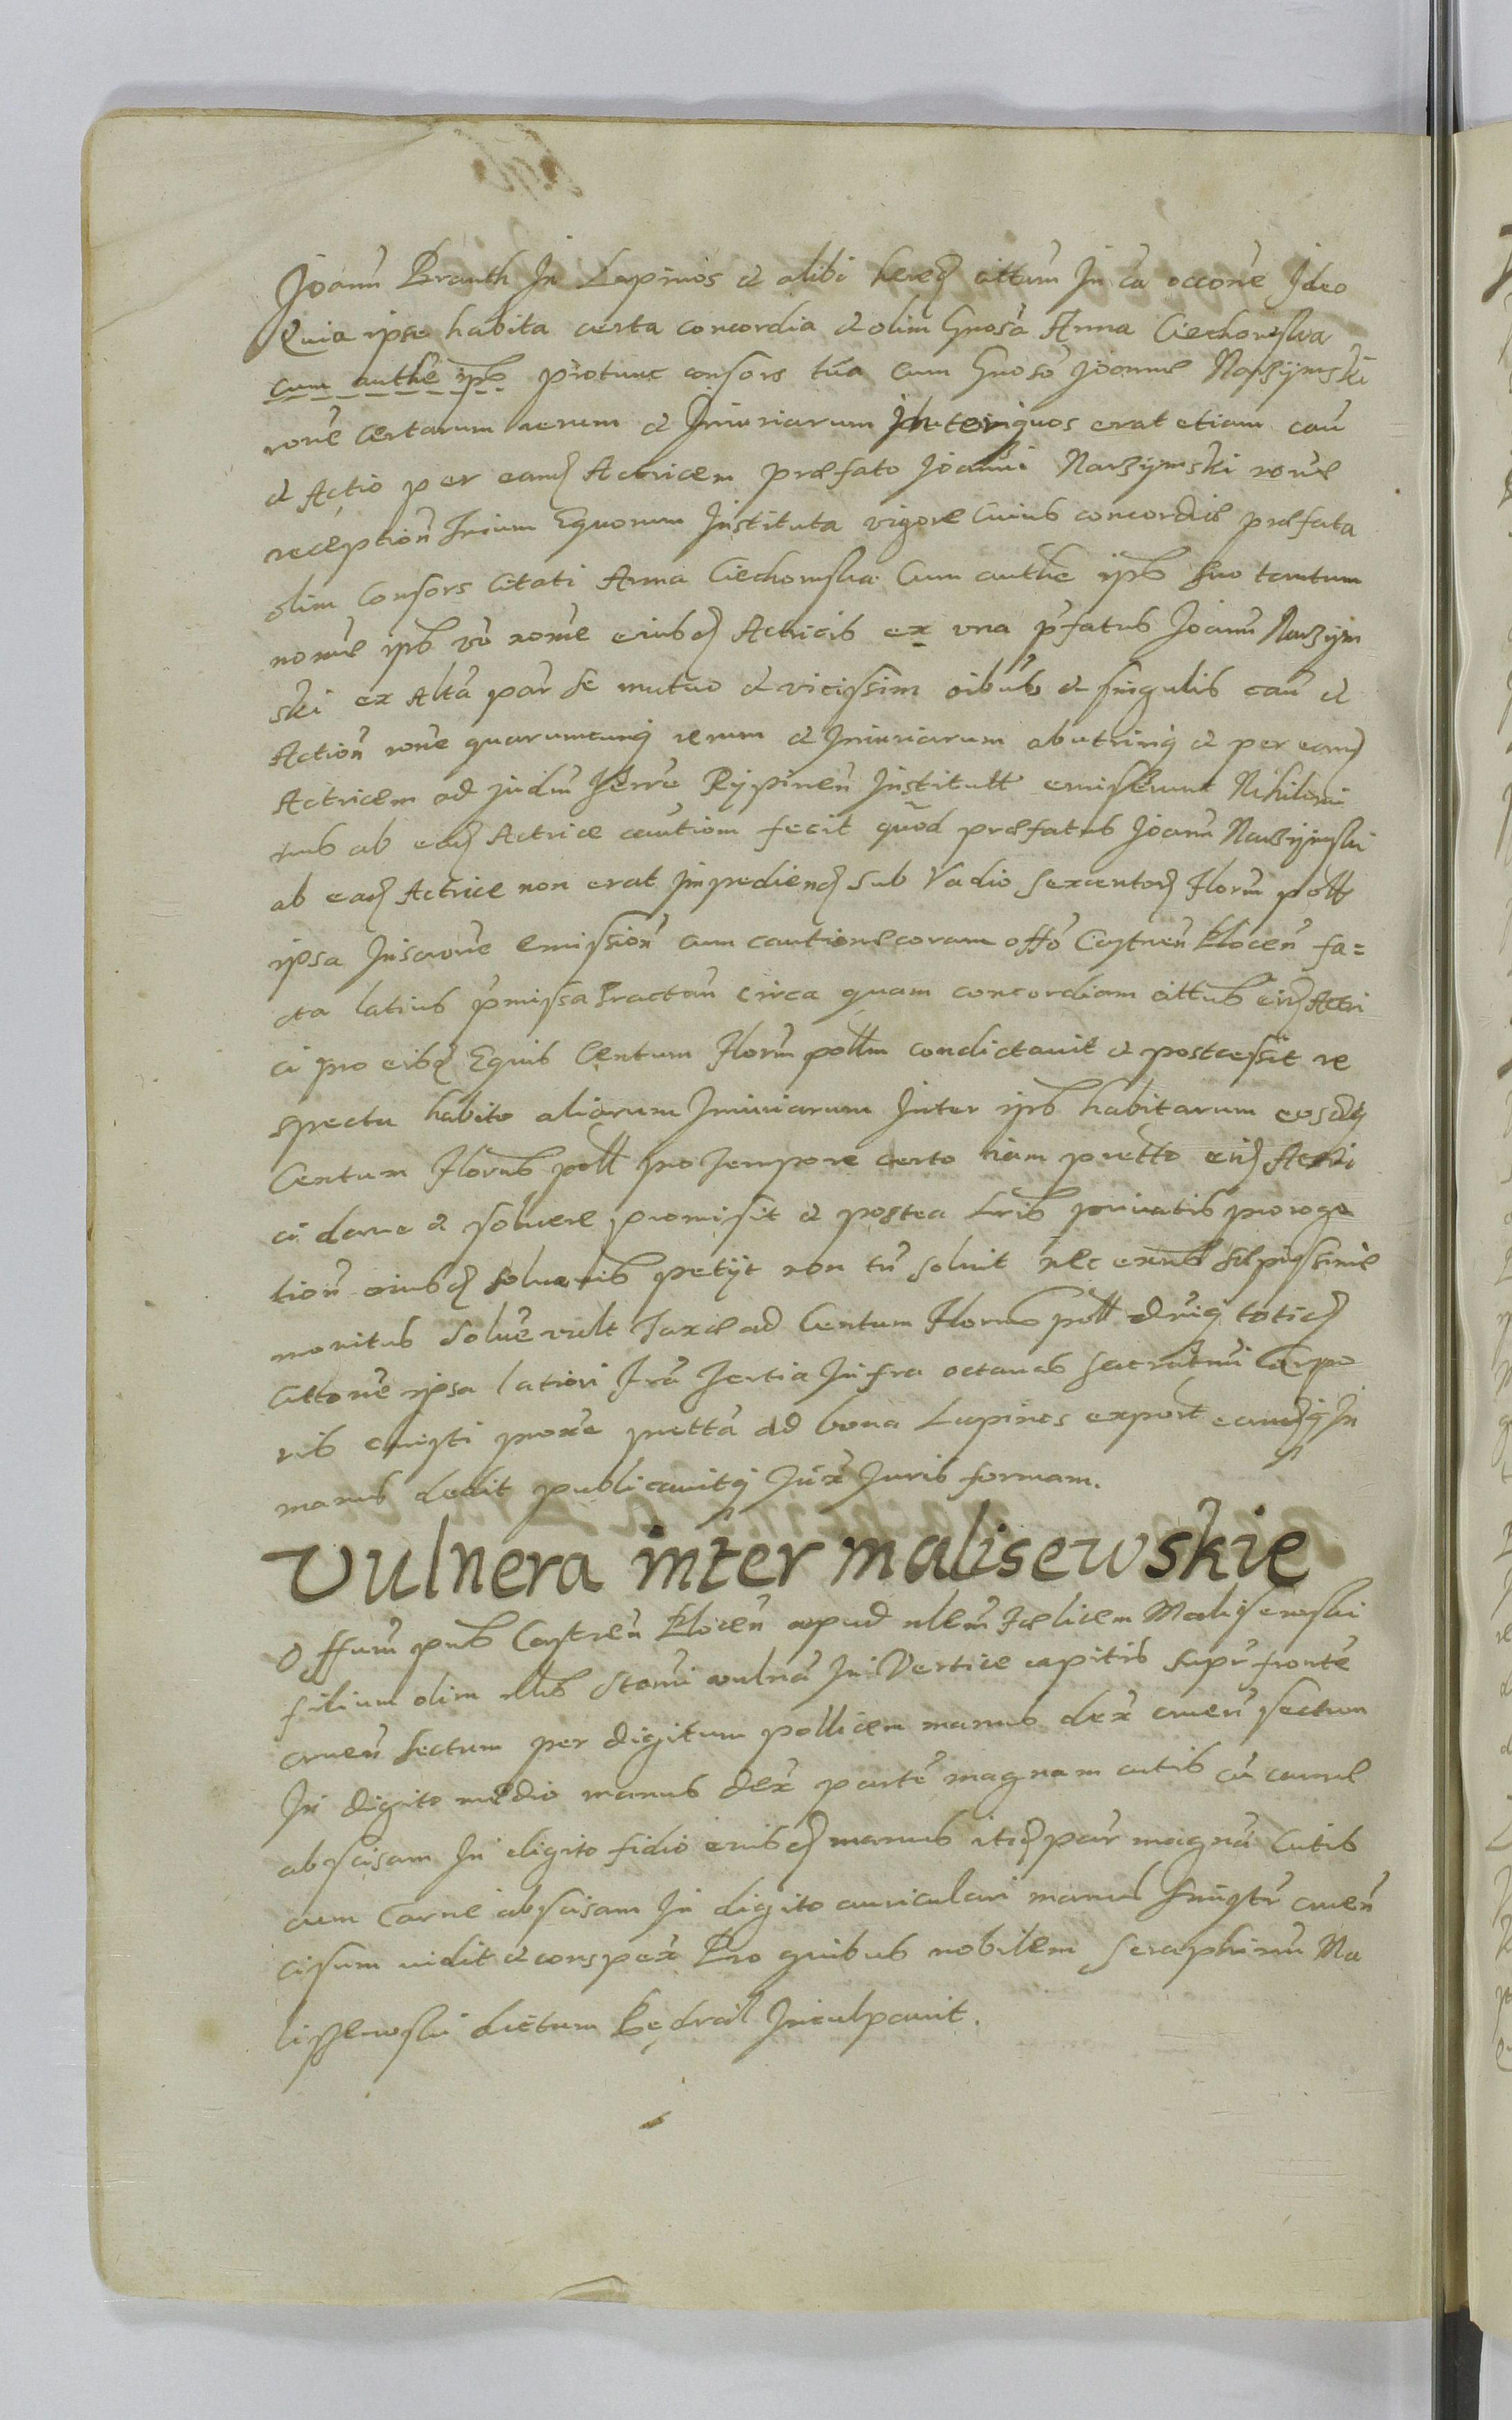 Joann Branth In Lapinos et alibi hered cittum In ea occone Ideo
Quia ipse habita certa concordia et olim Gnosa Anna Ciechomska
cum authe ipб protunc consors tua cum Gnoso Joanne Narzijmski
rone certarum rerum et Iniuriarum inter quos erat etiam cau
et Actio per eand Actricem præfato Joanni Narzijmski rone
reception Trium Equorum Instituta vigore Cuius concordiæ præfata
olim Consors Citati Anna Ciechomska Cum authe ips suo tantum
nomine ips vo nome eiusd Actricis ex una pfatus Joann Narzijm
ski ex Alta par se mutuo et vicissim oibus et singulis cau et
Action rone quarumcunq rerum et Iniuriarum ab utrinq et per eand
Actricem ad judm Terre Rijpinen Institutt emiserunt Nihilomi
nus ab ead Actrice cautiom fecit quod præfatus Joann Narzijmski
ab ead Actrice non erat Impediend sub Vadio sexcentor Florm poll
ipsa Inscrone emission cum cautione coram offo Castren Plocen fa=
cta latius pmissa tractan circa quam concordiam cittus eid Actri
ci pro eisd Equis Centum Florm pollm condictavit et postcessit re
spectu habito aliarum Iniuriarum Inter ips habitarum eosdq
Centum Florus poll pro tempore certo iam pretto eid Actri
ci dare et soluere promisit et postea Lris privatis proroga
tion eiusd solucnis petijt non tn soluit nec exnt sepissime
monitus Solue vult Taxæ ad Centum Florus poll totid
Cittone ipsa latiori Fra Tertia Infra octavas sacratmi Corpo
ris Cristi proxe pretta ad bona Lapinos export eamdq In
manus dedit publicavitq Jux Juris formam.
Vulnera inter malisewskie
Offium pns Castren Plocen apud nlem Fælicem Malisewski
filium olim nlis Stani vulna In Vertice capitis supr fronte
cruen sectum per digitum pollicem manus dex cruen sectum
In digito medio manus dex parte magnam cutis cu carne
abscisam In digito fidio eiusd manus itid par magna Cutis
cum Carne abscisam In digito auriculari manus sinistr cruen
cisum vidit et conspex Pro quibus nobilem Seraphinu Ma
lissewski dictum Kędrak Inculpavit.